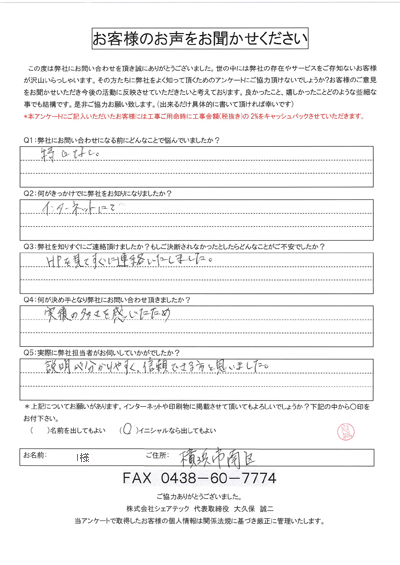 お客様のお声をお聞かせください
この度は弊社にお問い合わせを頂き誠にありがとうございました。世の中には弊社の存在やサービスをご存知ないお客様
が沢山いらっしゃいます。その方たちに弊社をよく知って頂くためのアンケートにご協力頂けないでしょうか?お客様のご意見
をお聞かせいただき今後の活動に反映させていただきたいと考えております。良かったこと、嬉しかったことどのような些細な
事でも結構です。是非ご協力お願い致します。(出来るだけ具体的に書いて頂ければ幸いです)
*本アンケートにご記入いただいたお客様には工事ご用命時に工事金額(税抜き)の2%をキャッシュバックさせていただきます。
Q1:弊社にお問い合わせになる前にどんなことで悩んでいましたか?
特になし。
Q2:何がきっかけでに弊社をお知りになりましたか?
インターネットにて
Q3:弊社を知りすぐにご連絡頂けましたか?もしご決断されなかったとしたらどんなことがご不安でしたか?
HPを見てすぐに連絡いたしました。
Q4:何が決め手となり弊社にお問い合わせ頂きましたか?
実績の多さを感じたため
Q5:実際に弊社担当者がお伺いしていかがでしたか?
説明が分かりやすく、信頼できる方と思いました。
*上記についてお願いがあります。インターネットや印刷物に掲載させて頂いてもよろしいでしょうか?下記の中から〇印を
お付下さい。
( )名前を出してもよい (〇)イニシャルなら出してもよい
お名前: I様 ご住所: 横浜市南区
FAX 0438-60-7774
ご協力ありがとうございました。
株式会社シェアテック 代表取締役 大久保 誠二
当アンケートで取得したお客様の個人情報は関係法規に基づき厳正に管理いたします。